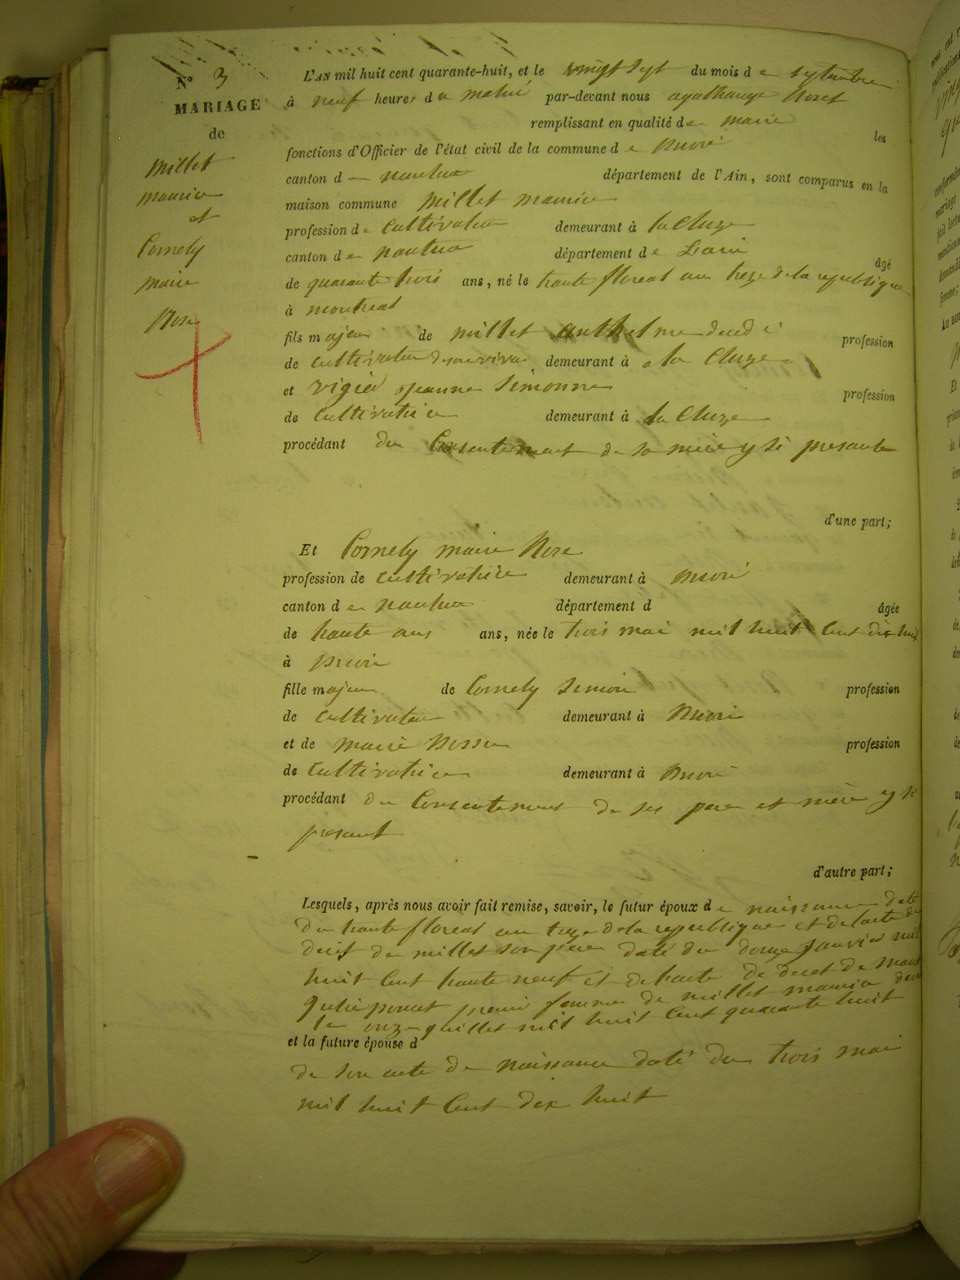 N° 3
MARIAGE
de
Millet
maurice
et
Cornely
marie
Rose
L'AN mil huit cent quarante-huit, et le vingt sept du mois de septembre
à neuf heures de matin par-devant nous
remplissant en qualité de maire les
fonctions d'Officier de l'état civil de la commune de
canton de nantua département de l'Ain, sont comparus en la
maison commune Millet maurice
profession de cultivateur demeurant à la Cluze
canton de nantua département de L'ain âgé
de quarante trois ans, né le trante floreal an treze de la republique
à montreal
fils majeur de millet anthelme décédé profession
de cultivateur de son vivant demeurant à la Cluze
et jeanne Simonne profession
de Cultivatrice demeurant à la Cluze
procédant du Consentement de sa mère y si presante
d'une part;
Et Cornely marie Rose
profession de cultivatrice demeurant à
canton de nantua département d âgée
de trante ans ans, née le trois mai mil huit Cent dix huit
à
fille majeur de Cornely Simon profession
de cultivateur demeurant à
et de marie profession
de Cultivatrice demeurant à
procédant du Consentement de ses pere et mère y si
presant
d'autre part;
Lesquels, après nous avoir fait remise, savoir, le futur époux de naissance daté
du trante floreal an treze de la republique et de l'acte de
deces de millet son pere daté du douze janvier mil
huit Cent trante neuf et de l'acte de deces de marie
julie femme de millet maurice
le onze juillet mil huit Cent quarante huit
et la future épouse d
de son acte de naissance daté du trois mai
mil huit Cent dix huit